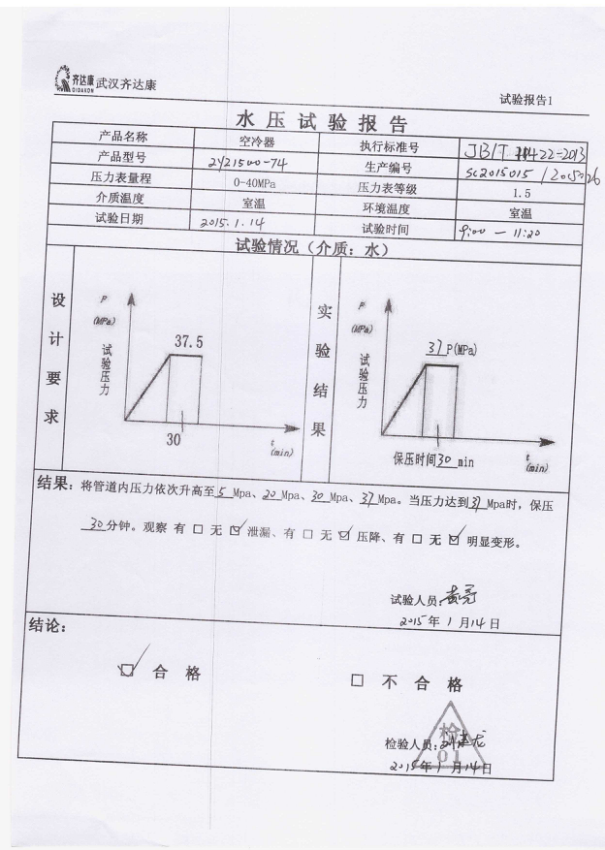 齐达康 武汉齐达康
QIDAKON
试验报告1
水压试验报告
产品名称 空冷器 执行标准号 JB/T 11422-2013
产品型号 2Y21500-74 生产编号 SC2015015 / 2015026
压力表量程 0-40MPa 压力表等级 1.5
介质温度 室温 环境温度 室温
试验日期 2015.1.14 试验时间 9:00 — 11:20
试验情况（介质：水）
设计要求
P
(MPa)
试验压力
37.5
30
t
(min)
实验结果
P
(MPa)
试验压力
37 P(MPa)
保压时间30 min
t
(min)
结果：将管道内压力依次升高至 5 Mpa、20 Mpa、30 Mpa、37 Mpa。当压力达到37Mpa时，保压
30分钟。观察 有 □ 无 ☑ 泄漏、有 □ 无 ☑ 压降、有 □ 无 ☑ 明显变形。
试验人员：
2015年 1 月14日
结论：
☑ 合格
□ 不合格
检验人员：
检
01
2015年 1 月14日